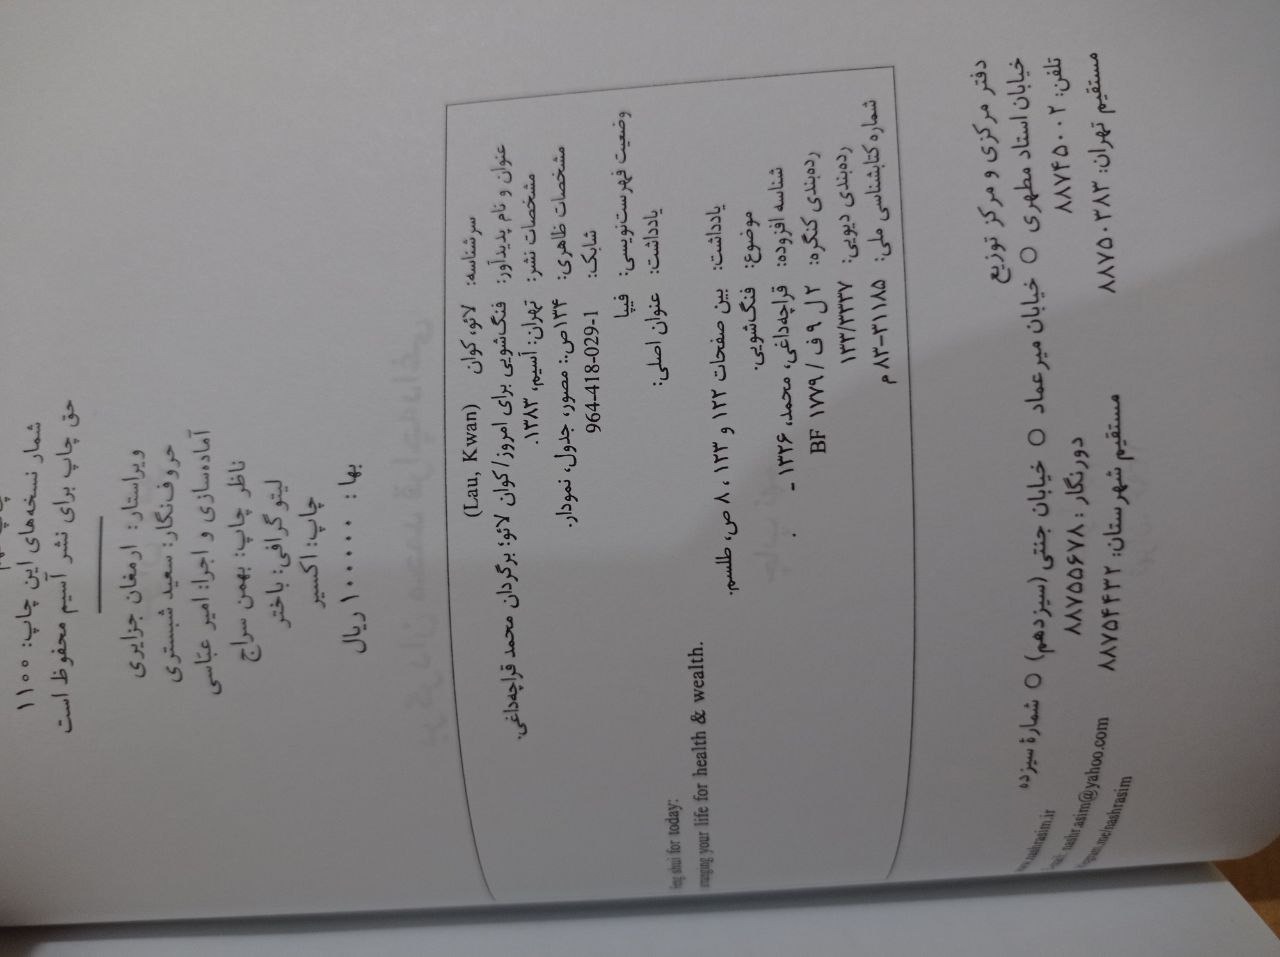 شمار نسخه‌های این چاپ: ۱۱۰۰
حق چاپ برای نشر آسیم محفوظ است
ویراستار: ارمغان جزایری
حروف‌نگار: سعید شبستری
آماده‌سازی و اجرا: امیر عباسی
ناظر چاپ: بهمن سراج
لیتوگرافی: باختر
چاپ: اکسیر
بها: ۱۰۰۰۰۰ ریال
سرشناسه: لائو، کوان (Lau, Kwan)
عنوان و نام پدیدآور: فنگ‌شویی برای امروز/ کوان لائو؛ برگردان محمد قراچه‌داغی.
مشخصات نشر: تهران: آسیم، ۱۳۸۳.
مشخصات ظاهری: ۱۳۴ص.: مصور، جدول، نمودار.
شابک: 964-418-029-1
وضعیت فهرست‌نویسی: فیپا
یادداشت: عنوان اصلی:
shui for today:
your life for health & wealth.
یادداشت: بین صفحات ۱۲۲ و ۱۲۳، ۸ ص، طلسم.
موضوع: فنگ‌شویی.
شناسه افزوده: قراچه‌داغی، محمد، ۱۳۲۶ - .
رده‌بندی کنگره: ۲ ل ۹ ف / BF ۱۷۷۹
رده‌بندی دیویی: ۱۳۳/۳۳۳۷
شماره کتابشناسی ملی: ۳۱۱۸۵-۸۳ م
دفتر مرکزی و مرکز توزیع
خیابان استاد مطهری ○ خیابان میرعماد ○ خیابان جنتی (سیزدهم) ○ شمارهٔ سیزده
تلفن: ۸۸۷۴۵۰۰۲ دورنگار: ۸۸۷۵۵۶۷۸
مستقیم تهران: ۸۸۷۵۰۳۸۳ مستقیم شهرستان: ۸۸۷۵۴۴۳۲
nashrasim.ir
nashr.asim@yahoo.com
me/nashrasim